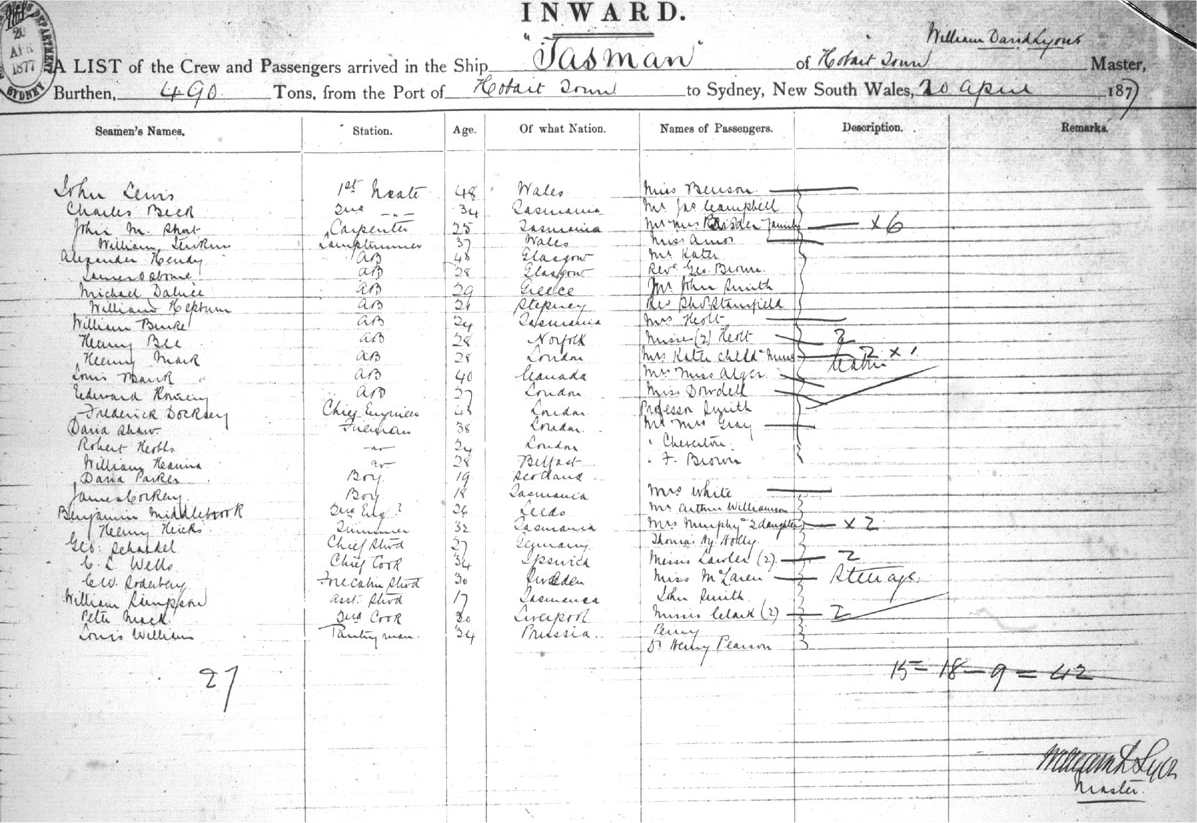 20
APR
1877
SYDNEY
INWARD.
William David Lyons
A LIST of the Crew and Passengers arrived in the Ship "Tasman" of Hobart Town Master,
Burthen, 490 Tons, from the Port of Hobart Town to Sydney, New South Wales, 20 April 1877
Seamen's Names. Station. Age. Of what Nation. Names of Passengers. Description. Remarks.
John Lewis 1st Mate 48 Wales Miss Benson
Charles Beer 34 Tasmania Mr Jas Campbell
John M. Short Carpenter 25 Tasmania Mr Mrs Family x6
William Lamptrimmer 37 Wales Miss Amos
Alexander Hendy AB 48 Glasgow Mr Kater
James Osborne AB 28 Glasgow Revd Geo. Brown
Michael AB 29 Greece Mr John Smith
William Hepburn AB Stepney Stansfield
William Burke AB 24 Tasmania Mrs Hott
Henry Bee AB 28 Norfolk Misses (2) Hott 2
Henry Mack AB 28 London Mrs Kater child Nurse 2 x 1
Louis AB 40 Canada Mr Miss Alger
Edward AB 27 London Miss Dowdell
Frederick Chief Engineer 48 London Professor Smith
David Shaw Fireman 38 London Mr Mrs Gray
Robert Hobbs 24 London Cheverton
William Hanna 28 Belfast F. Brown
David Parker Boy 19 Scotland
James Corkery Boy 18 Tasmania Mrs White
Benjamin Middlebrook 2nd Eng. 26 Leeds Mr Arthur Williamson
Henry Hicks 32 Tasmania Mrs Murphy 2 daughters x 2
Geo. Schardel Chief Stwd 27 Germany Thomas
C. L. Wells Chief Cook 34 Ipswich Misses Lawler (2) 2
C. W. Forecabin Stwd 30 Sweden Miss McLaren Steerage
William Simpson Asst. Stwd 17 Tasmania John Smith
Peter Mack 2nd Cook 20 Liverpool Misses Clark (2) 2
Louis William Pantryman 34 Prussia Penny
Dr Henry Pearson
27
15 - 18 - 9 = 42
William D Lyons
Master.